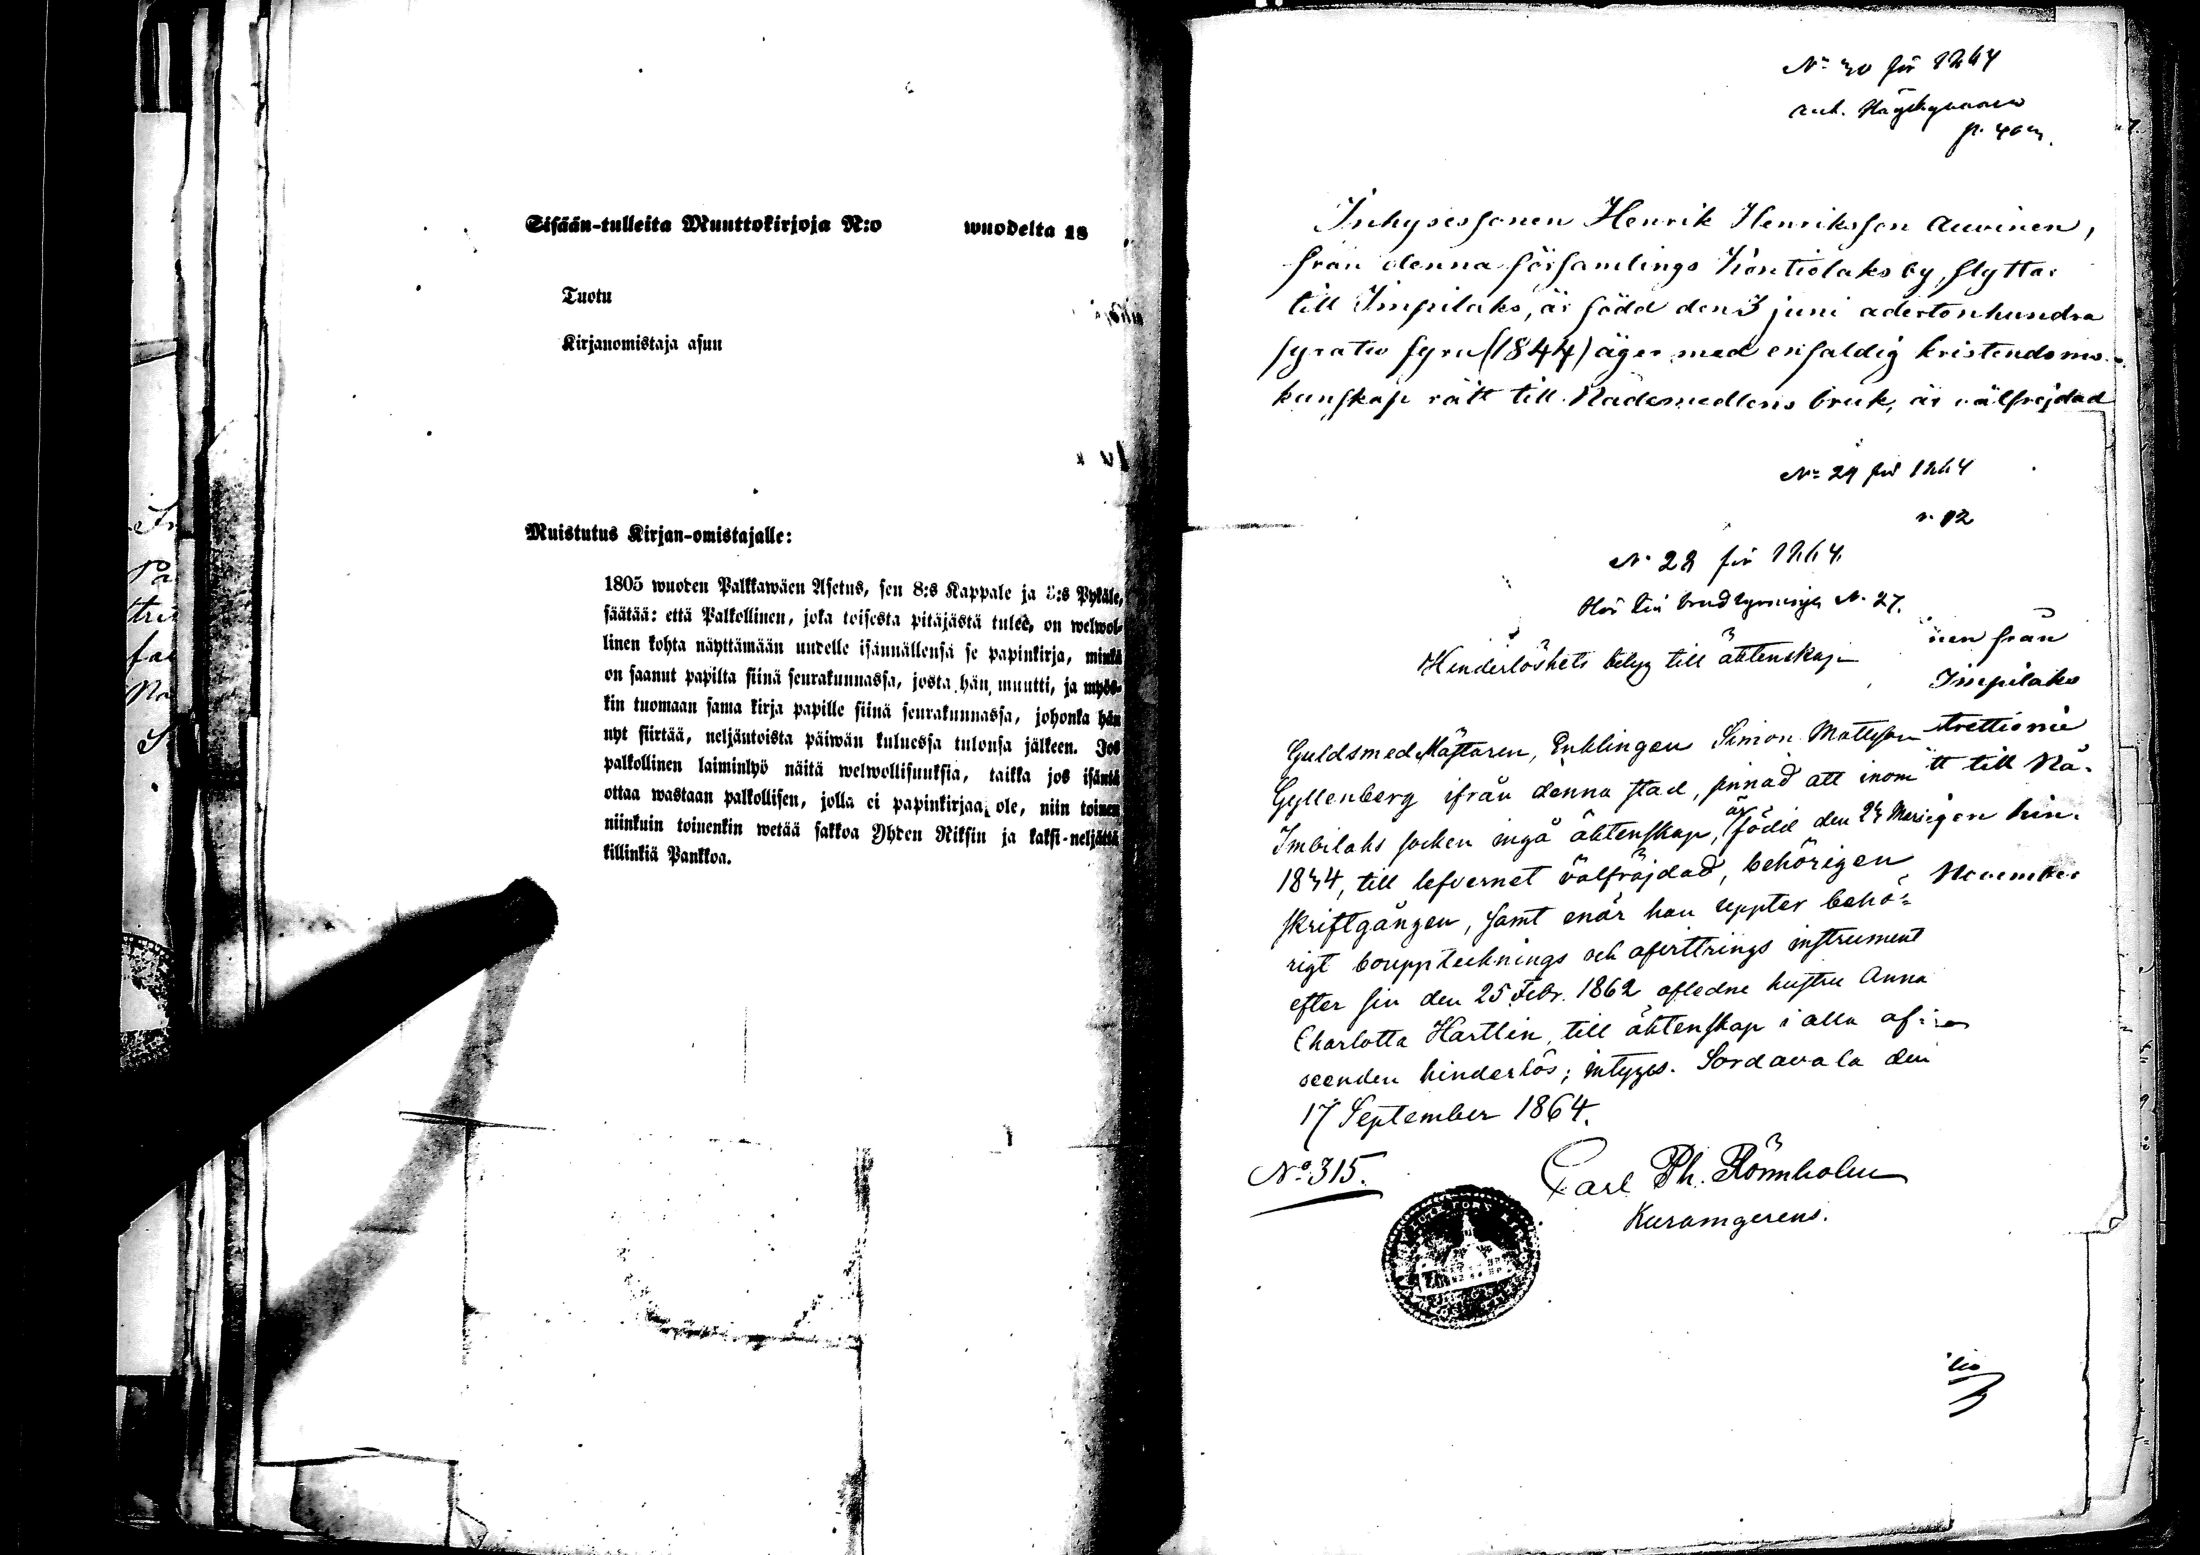 Sisään-tulleita Muuttokirjoja N:o wuodelta 18
Tuotu
Kirjanomistaja asuu
Muistutus Kirjan-omistajalle:
1805 wuoden Palkkawäen Asetus, sen 8:s Kappale ja :s Pykäle,
säätää: että Palkollinen, joka toisesta pitäjästä tulee, on welwol-
linen kohta näyttämään uudelle isännällensä se papinkirja, minkä
on saanut papilta siinä seurakunnassa, josta hän muutti, ja myös-
kin tuomaan sama kirja papille siinä seurakunnassa, johonka hän
nyt siirtää, neljäntoista päiwän kuluessa tulonsa jälkeen. Jos
palkollinen laiminlyö näitä welwollisuuksia, taikka jos isäntä
ottaa wastaan palkollisen, jolla ei papinkirjaa ole, niin toinen
niinkuin toinenkin wetää sakkoa Yhden Riksin ja kaksi-neljättä
killinkiä Pankkoa.
No 30 för 1864
Inhysessonen Henrik Henriksson Auvinen,
från denna församlings Kontiolaks by, flyttar
till Impilaks, är född den 3 juni adertonhundra
fyratio fyra (1844) äger med enfaldig kristendoms-
kunskap rätt till Nådemedlens bruk, är välfrejdad
No 29 för 1864
p. 12
No 28 för 1864.
Hör till No 27.
Hinderlöshets betyg till äktenskap
nen från
Impilaks
trettionie
tt till Nå-
igen hin-
November
Guldsmed Mästaren, Enklingen Simon Mattsson
Gyllenberg ifrån denna stad, sinnad att inom
Imbilaks socken ingå äktenskap, är född den 24 Mars
1834, till lefvernet välfräjdad, behörigen
skriftgången, samt enär han uppter behö-
rigt bouppteknings och afvittrings instrument
efter sin den 25 Febr. 1862 aflidne hustru Anna
Charlotta Hartlin, till äktenskap i alla af-
seenden hinderlös; intygas. Sordavala den
17 September 1864.
No 315.
Carl Ph. Rönnholm